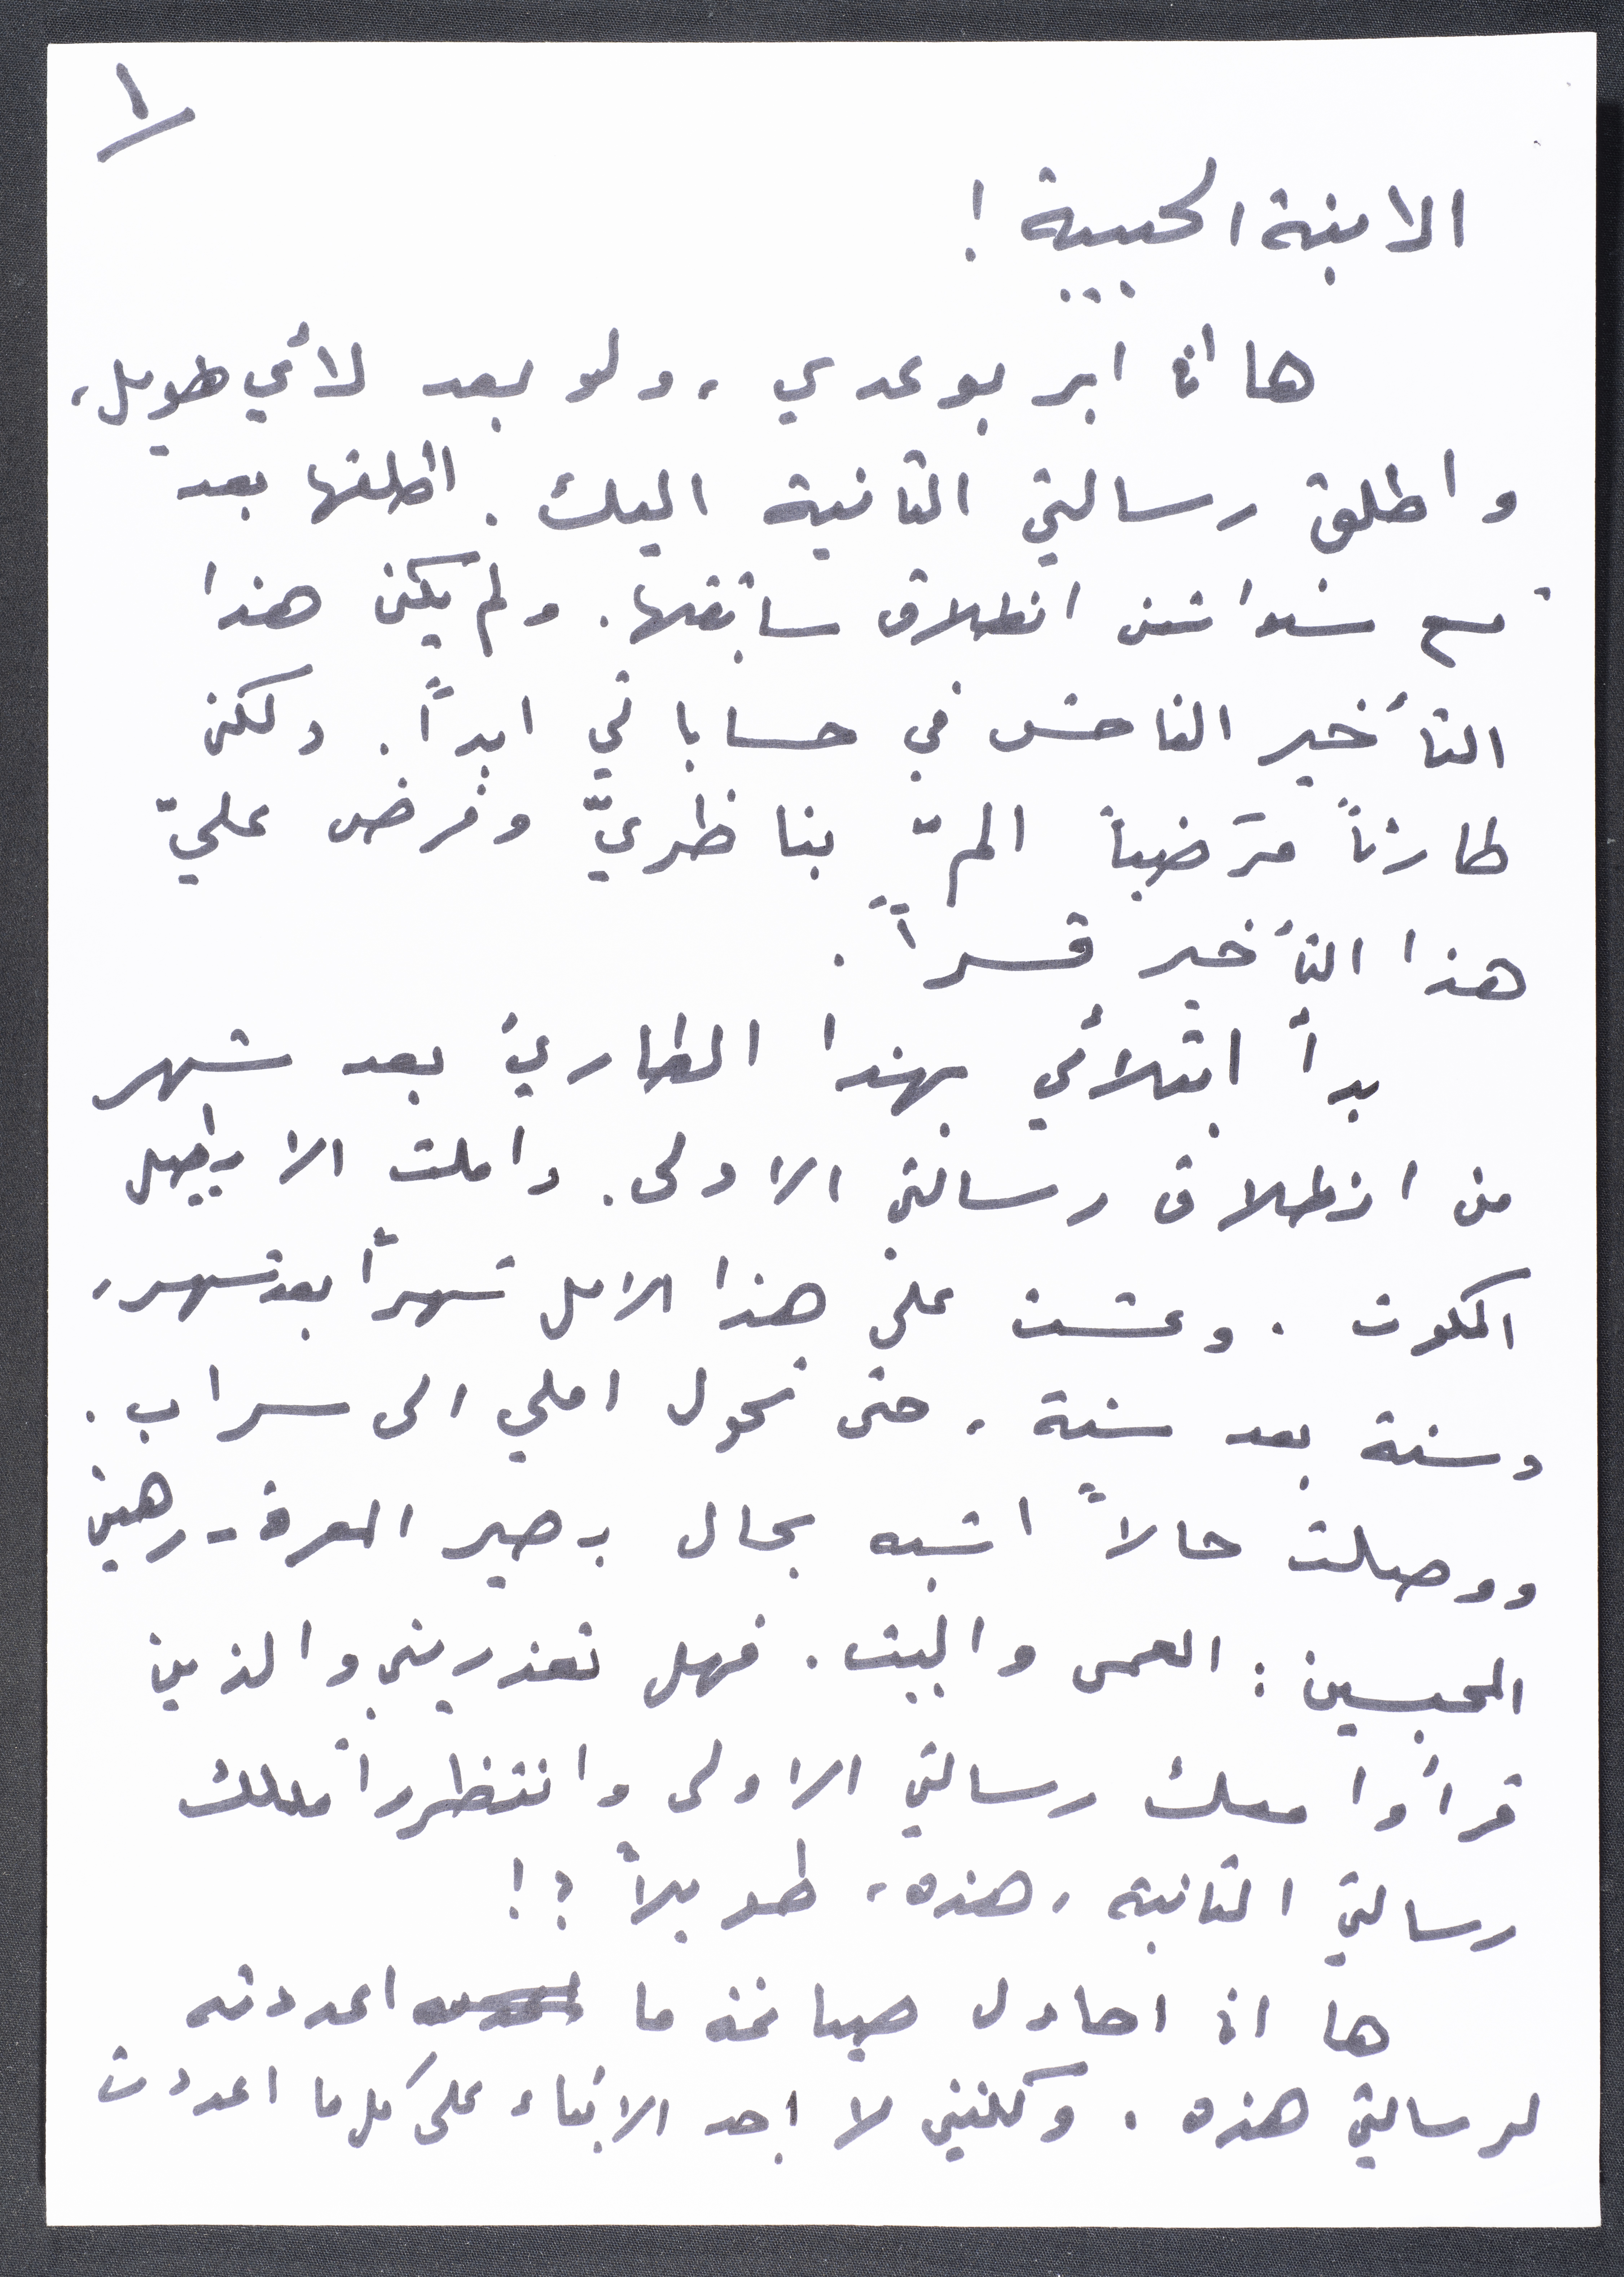 ١
الابنة الحبيبة !
ها انا ابر بوعدي ، ولو بعد لأي طويل ،
واطلق رسالتي الثانية اليك . اطلقها بعد
تسع سنوات من انطلاق سابقتها . ولم يكن هذا
التأخير الفاحش في حساباتي ابداً . ولكن
طارئاً مرضياً المّ بناظريّ وفرض عليّ
هذا التأخير قسراً .
بدأ ابتلائي بهذا الطارئ بعد شهر
من انطلاق رسالتي الاولى . واملت الا يطيل
المكوث . وعشت على هذا الامل شهراً بعد شهر ،
وسنة بعد سنة . حتى تحول املي الى سراب .
ووصلت حالاً اشبه بحال بصير المعرة - رهين
المحبسين : العمى والبيت . فهل تعذريني والذين
قرأوا معك رسالتي الاولى وانتظروا معك
رسالتي الثانية ، هذه ، طويلاً ؟ !
ها انا احاول صياغة ما اعددته
لرسالتي هذه . ولكنني لا اجد الابقاء على كل ما اعددت